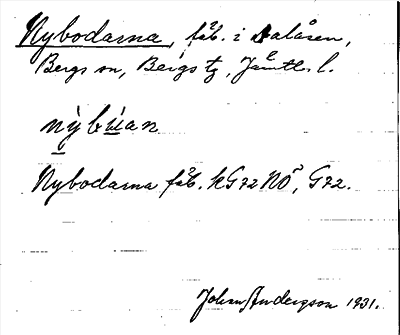 Nybodarna, fäb. i Dalåsen,
Bergs sn, Bergs tg, Jämtl. l.
nỳbúan
Nybodarna fäb. kG72NÖ, G72.
Johan Andergson 1931.